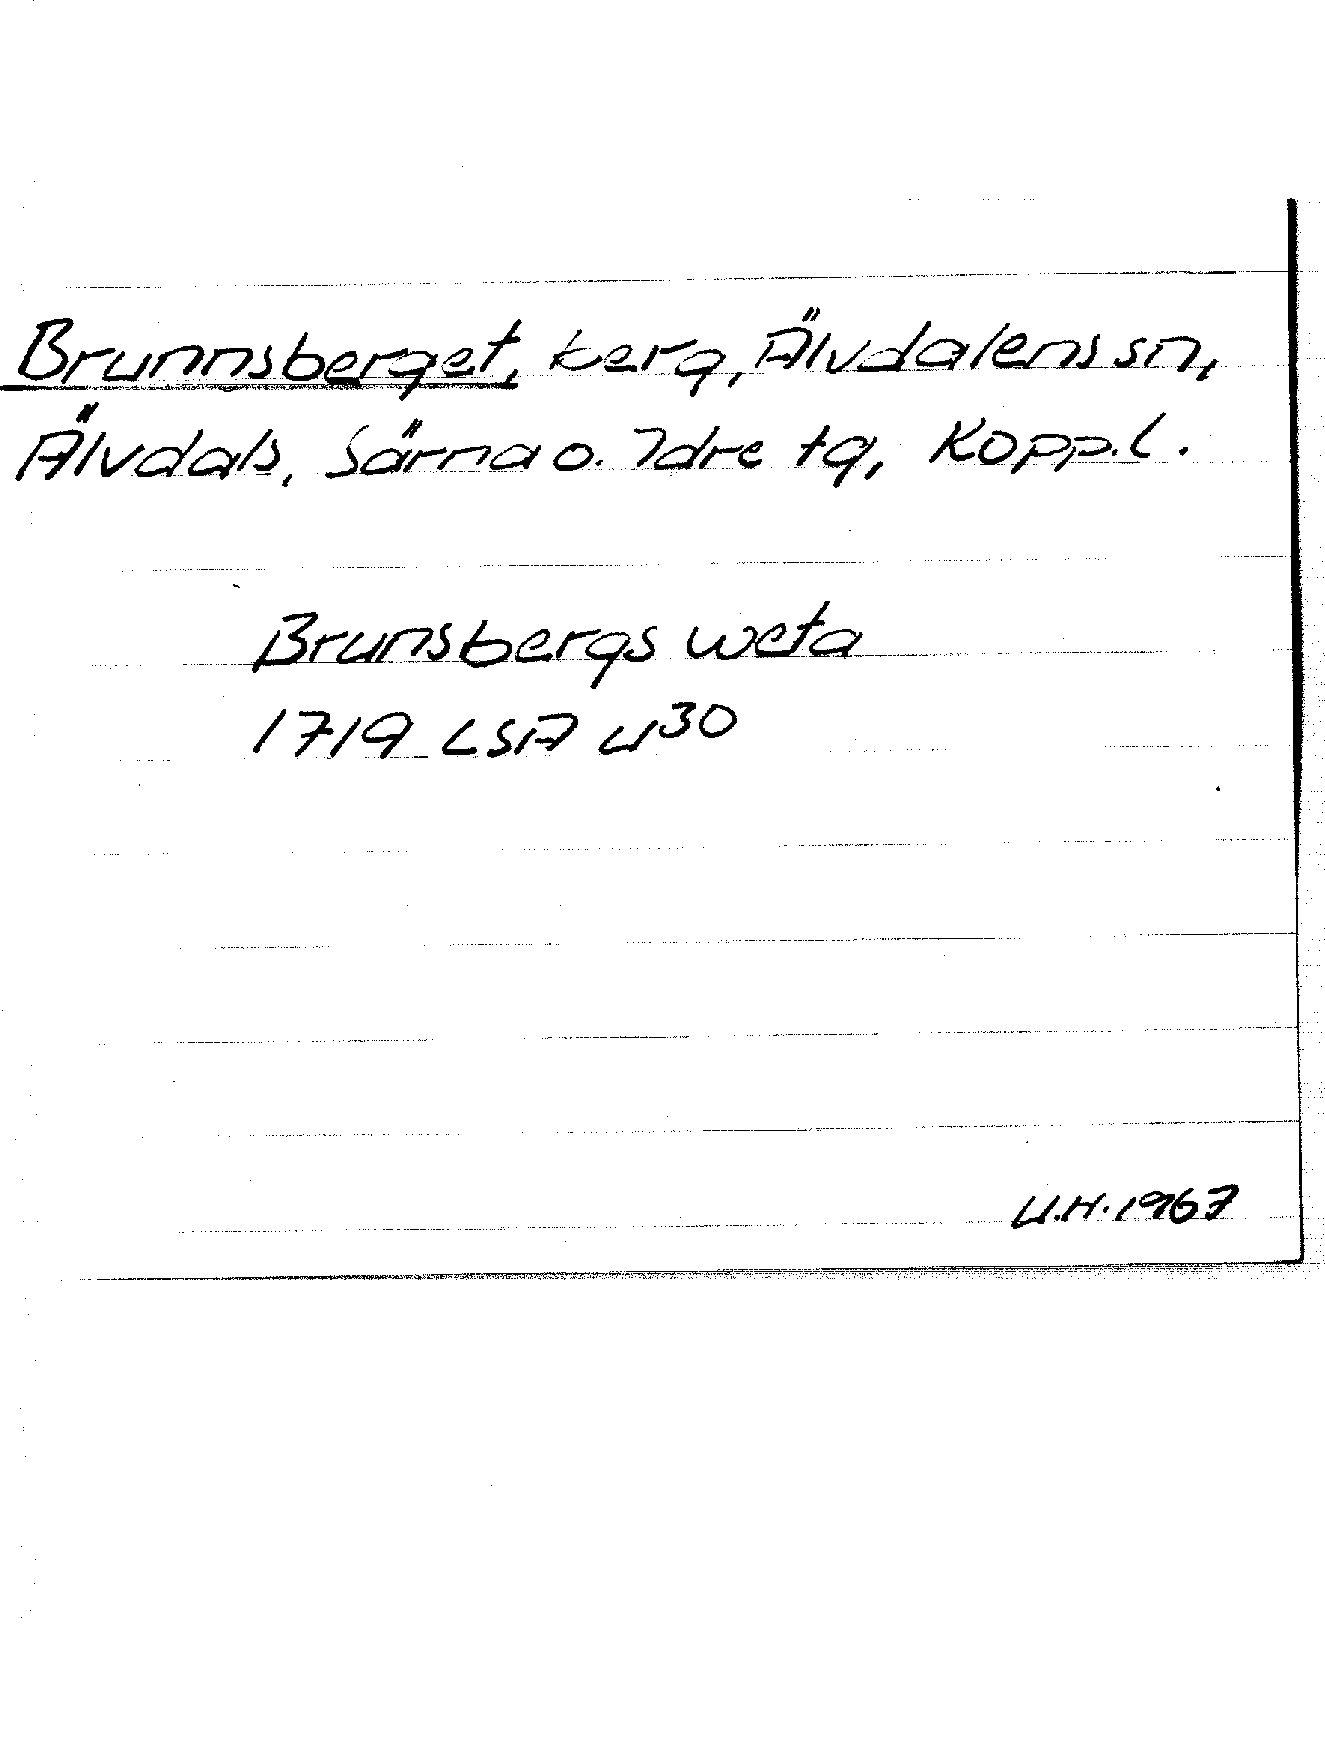 Brunnsberget, berg, Älvdalens sn,
Älvdals, Särna o. Idre tg, Kopp.l.
Brunsbergs weta
1719 LSA U³⁰
U.H. 1967